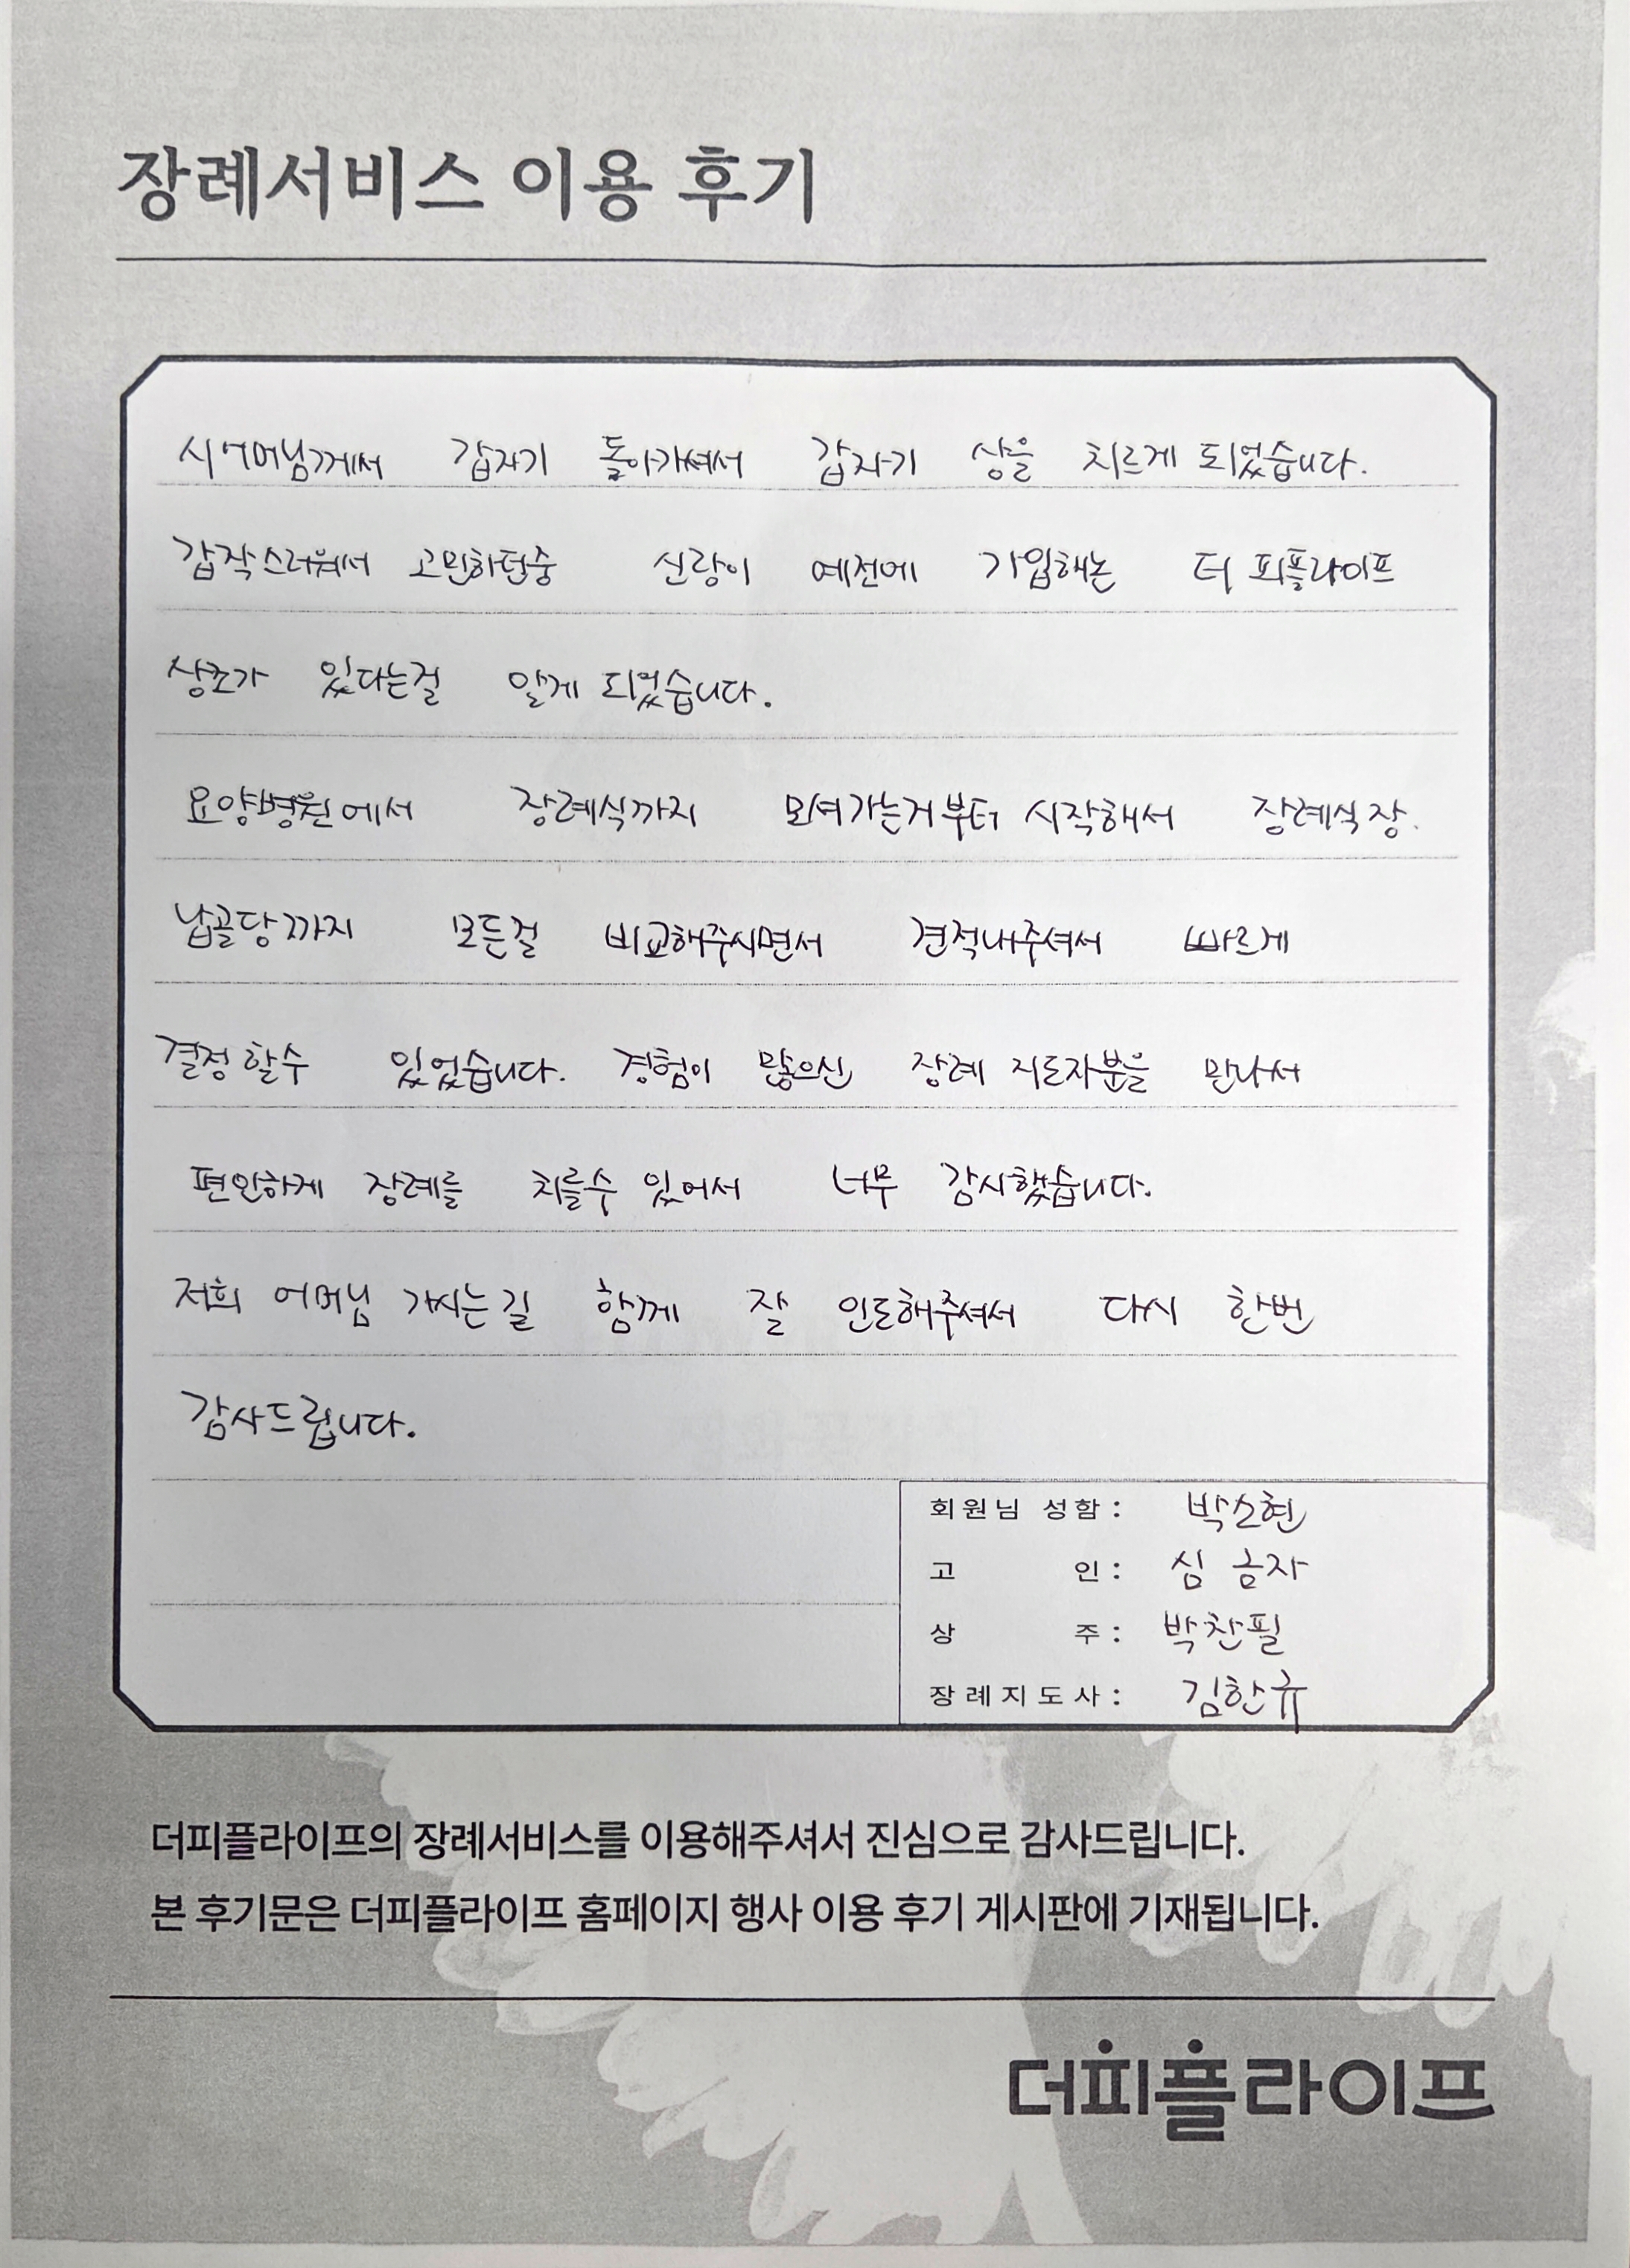 장례서비스 이용 후기
시어머님께서 갑자기 돌아가셔서 갑자기 상을 치르게 되었습니다.
갑작스러워서 고민하던중 신랑이 예전에 가입해논 더 피플라이프
상조가 있다는걸 알게 되었습니다.
요양병원에서 장례식까지 모셔가는거부터 시작해서 장례식장.
납골당까지 모든걸 비교해주시면서 견적내주셔서 빠르게
결정 할수 있었습니다. 경험이 많으신 장례 지도자분을 만나서
편안하게 장례를 치를수 있어서 너무 감사했습니다.
저희 어머님 가시는길 함께 잘 인도해주셔서 다시 한번
감사드립니다.
회원님 성함 : 박소현
고 인 : 심금자
상 주 : 박찬필
장례지도사 : 김한규
더피플라이프의 장례서비스를 이용해주셔서 진심으로 감사드립니다.
본 후기문은 더피플라이프 홈페이지 행사 이용 후기 게시판에 기재됩니다.
더피플라이프